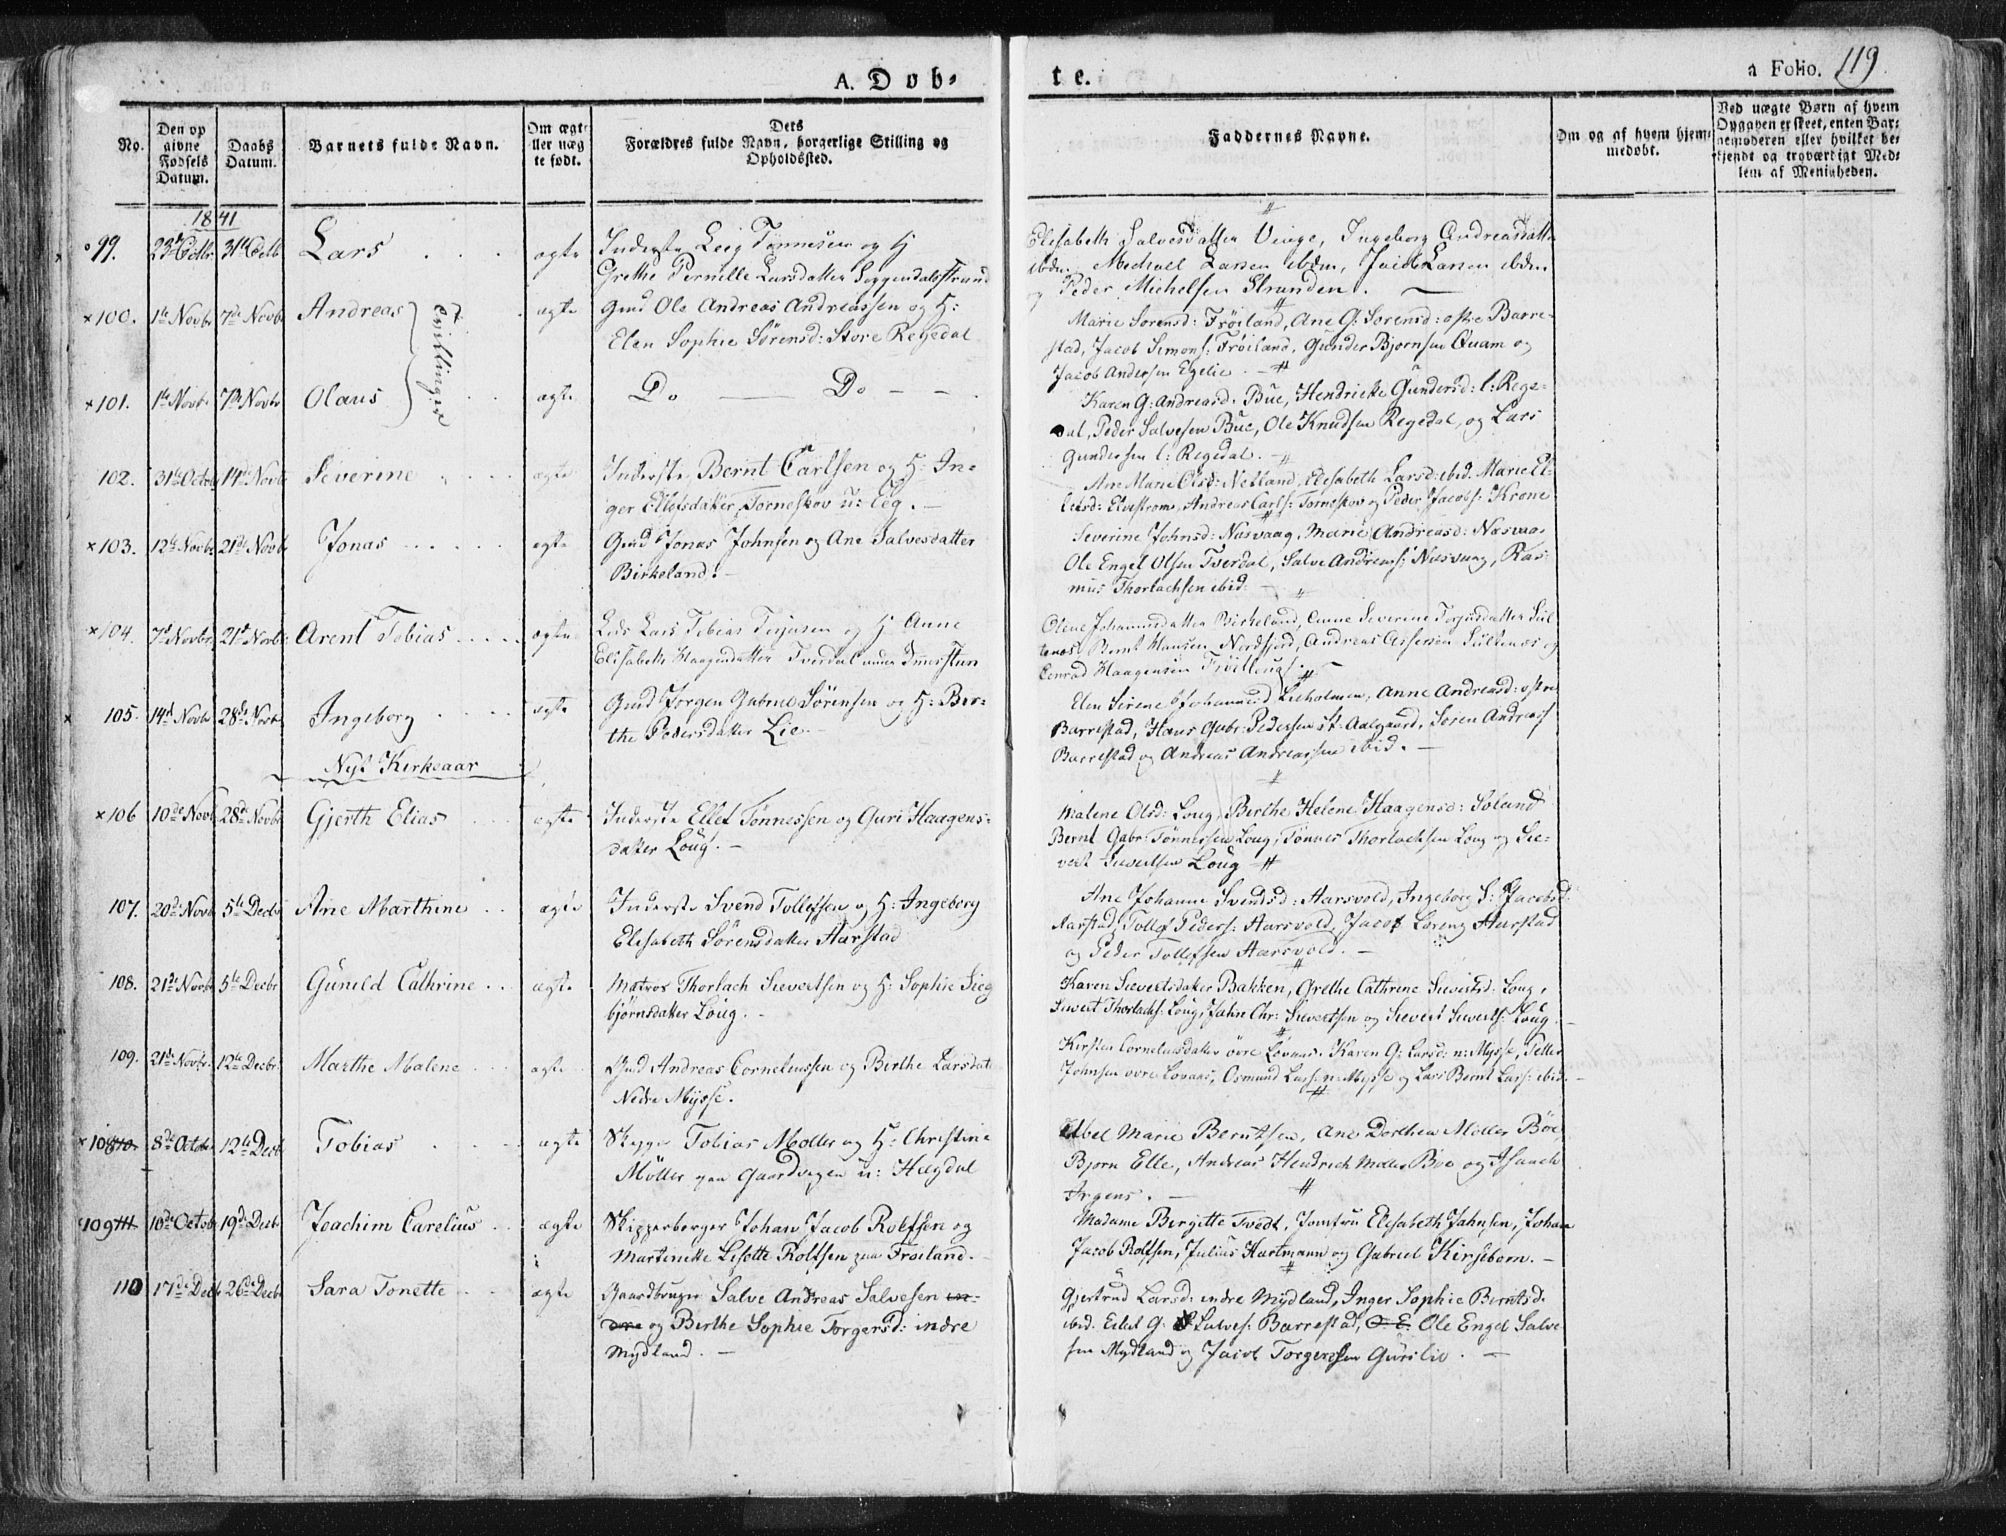 A. Døb-
te.
a Folio. 119
No.
Den op
givne
Fødsels
Datum.
Daabs
Datum.
Barnets fulde Navn.
Om ægte
eller uæg
te født.
Dets
Forældres fulde Navn, borgerlige Stilling og
Opholdssted.
Faddernes Navne.
Om og af hvem hjem-
medøbt.
Ved uægte Børn af hvem
Opgaven er skeet, enten Bar-
nemoderen eller hvilket be-
kjendt og troværdigt Med-
lem af Menigheden.
1841
99. 23d Octbr 31te Octb Lars ægte Inderste Tønnesen og H
Grethe Pernille Larsdatter Soggendalsstrand
Elisabeth Salvesdatter Ingeborg Andreasdatter
ibdm, Michael Larsen ibdm, Jacob Larsen ibdm
og Peder Michelsen Stranden.
×100. 1te Novbr 7de Novbr Andreas Tvillinger ægte Gmd Ole Andreas Andreassen og H:
Elen Sophie Sörensd: Store Regedal
Marie Sorensd: Fröiland, Ane G: Sorensd: ostre Barre-
stad, Jacob Simons: Fröiland, Gunder Bjornsen Quam og
Jacob Andersen Egelie.
×101. 1te Novbr 7de Novbr Olaus ægte Do — Do — —
Karen G: Andreasd. Bue, Hendrikke Gundersd: l: Rege-
dal, Peder Salvesen Bue, Ole Knudsen Regedal, og Lars
Gundersen l: Regedal. —
102. 31te Octobr 14de Novbr Severine ægte Inderste Bernt Carlsen og H: In-
ger Ellefsdatter Torneskov
Ane Marie Olsd: Netland, Elisabeth Larsd: ibid. Marie El-
lefsd: Elvestrom, Andreas Carls: Torneskov og Peder Jacobs: Krone
×103. 12te Novbr 21de Novbr Jonas ægte Gmd Jonas Johnsen og Ane Salvesdatter
Birkeland. —
Severine Johnsd: Nesvaag, Marie Andreasd: Nesvaag
Ole Engel Olsen Tverdal, Salve Andreas: Nesvaag, Ras-
mus Thorlachsen ibid.
×104. 7d Novbr 21d Novbr Arent Tobias ægte Lods Lars Tobias og H Anne
Elisabeth Haagensdatter Tverdal
Olene Johannesdatter Birkeland, Anne Severine
Bernt Hansen Nordfjord, Andreas og
Conrad Haagensen
105. 14d Novbr 28de Novbr Ingeborg ægte Gmd Jorgen Gabriel Sörensen og H: Ber-
the Pedersdatter Lie. —
Elen Sirene Johannesd Anne Andreasd: ostre
Barrestad, Hans Gabr: Pedersen st: Aalgaard, Soren Andreas:
Barrestad og Andreas Andreassen ibid. —
Nyt Kirkeaar
×106 10de Novbr 28de Novbr Gjerth Elias ægte Inderste Ellef Tönnessen og Guri Haagens-
datter Loug. —
Malene Olsd: Loug, Berthe Helene Haagensd: Soland
Bernt Gabr: Tönnessen Loug, Tönnes Thorlachsen Loug og Sie-
vert Sievertsen Loug
107. 20de Novbr 5te Decbr Ane Marthine ægte Inderste Svend Tollefsen og H: Ingeborg
Elisabeth Sörensdatter Aarstad
Ane Johanne Svendsd: Aarsvold, Ingeborg S: Jacobsd:
Aarstad, Tollef Peders: Aarsvold, Jacob Lorenz Aarstad
og Peder Tollefsen Aarsvold. —
108. 21de Novbr 5te Decbr Gunild Cathrine ægte Matros Thorlach Sievertsen og H: Sophie Sieg
björnsdatter Loug. —
Karen Sievertsdatter Bakken, Grethe Cathrine Sievertsd: Loug,
Sievert Thorlachs: Loug, John Chr: Sievertsen og Sievert Sieverts: Loug
109. 21de Novbr. 12te Decbr. Marthe Malene ægte Gmd Andreas Corneliussen og Berthe Larsdat
Nedre Mysse.
Kirsten Corneliusdatter övre Lovaas, Karen G: Larsd: n: Mysse, Petter
Johnsen ovre Lovaas, Osmund Lars: n: Mysse og Lars Bernt Lars: ibid. —
×108 110. 8de Octobr 12te Decbr Tobias ægte Skipper Tobias Moller og H: Christine
Möller paa Gaardvegen u: Hægdal
Abel Marie Berntsen, Ane Dorthea Möller Böe
Bjorn Elle, Andreas Hendrich Moller Böe og Isaach
Irgens. —
109 111 10de Octobr 19de Decbr Joachim Carelius ægte Skipperborger Johan Jacob Rolfsen og
Martinette Lisette Rolfsen paa Froiland. —
Madame Birgitte Tvedt, Jomfru Elisabeth Jahnsen, Johan
Jacob Rolfsen, Julius Hartmann og Gabriel Kirseborn. —
110 17de Decbr 26de Decbr Sara Tonette ægte Gaardbruger Salve Andreas Salvesen in-
dre og Berthe Sophie Torgersd: indre
Mydland. —
Gjertrud Larsd: indre Mydland, Inger Sophie Berntsd:
ibid. Eilef G. Salves: Barrestad, O. E. Ole Engel Salve
sen Mydland og Jacob Torgersen Gurilie. —